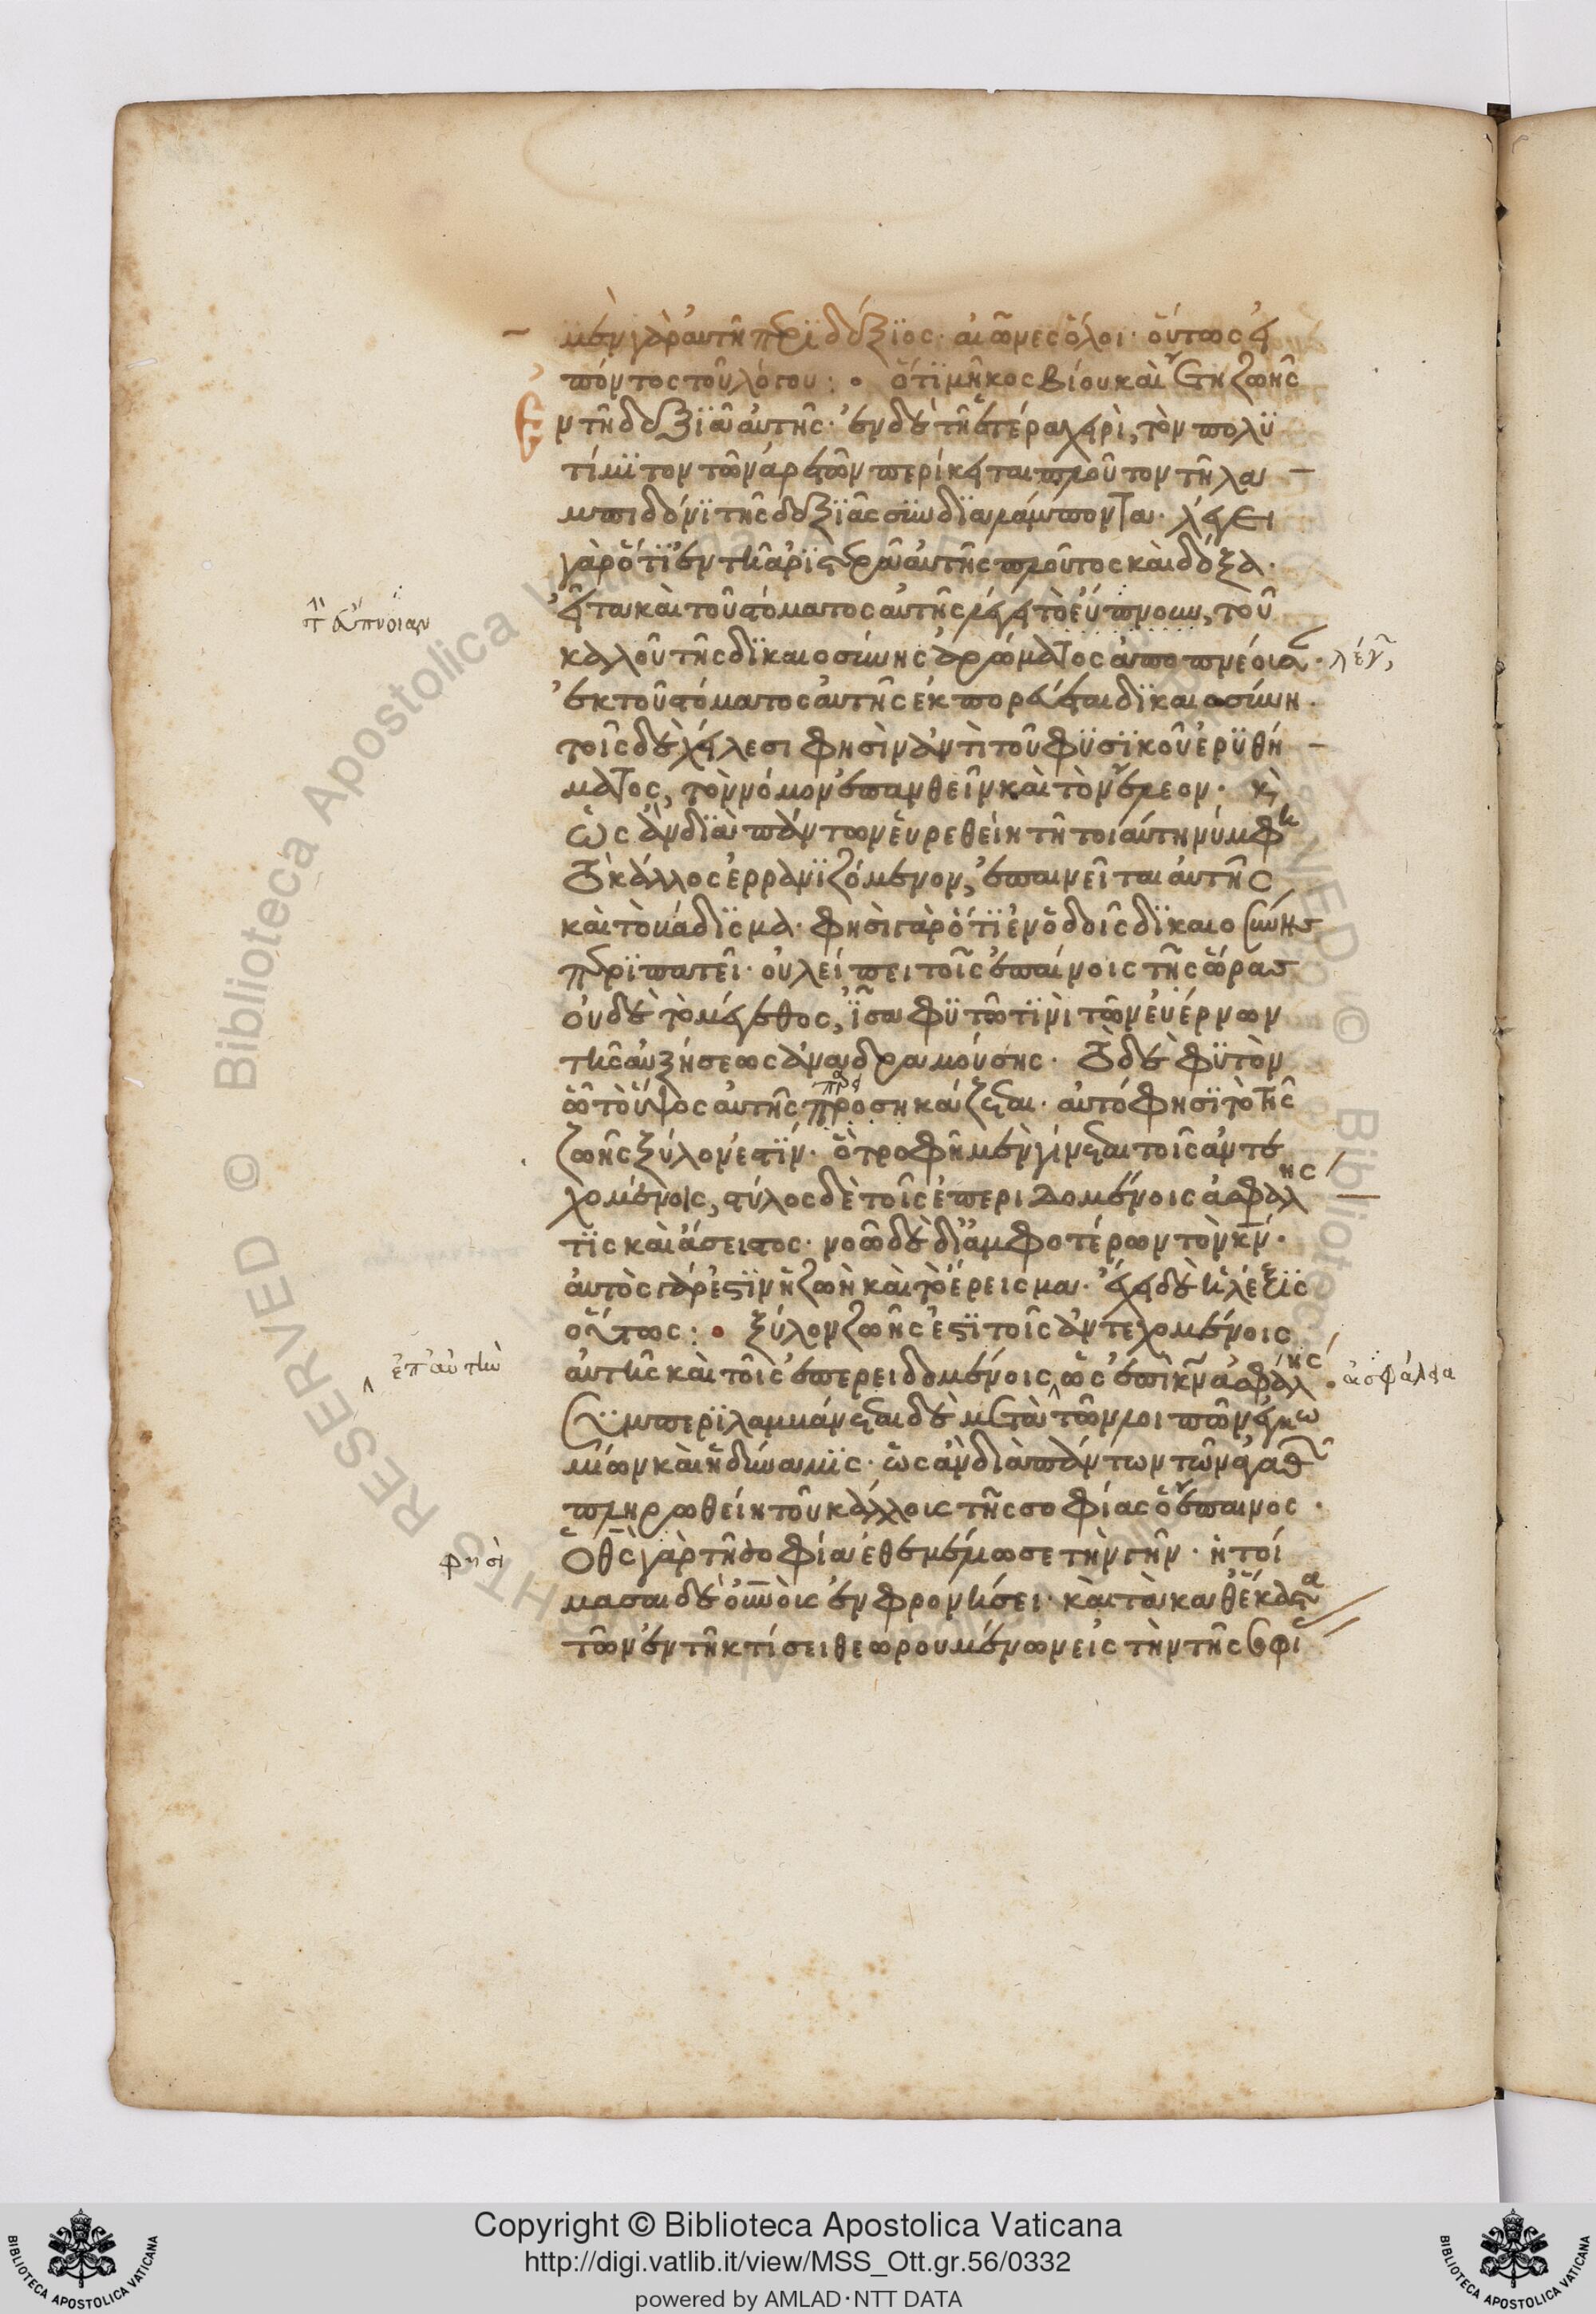 μὲν γὰρ αὐτῇ περιδέξιος· αἰῶνες ὅλοι· οὕτως εἰ
πόντος τοῦ λόγου : ὅτι μῆκος βίου καὶ ἔτη ζωῆς
Ἐν τῇ δεξιᾷ αὐτῆς· ἐν δὲ τῇ ἑτέρα χειρὶ, τὸν πολυ
τίμιτον τῶν ἀρετῶν περίκειται πλοῦτον τῇ λα
μπιδόνι τῆς δοξιᾶς συνδιαλάμποντα· λέγει
γὰρ ὅτι ἐν τῇ ἀριστερᾷ αὐτῆς πλοῦτος καὶ δόξα·
εἶτα καὶ τοῦ στόματος αὐτῆς λέγει τὸ εὔπνοιαν, τοῦ
καλοῦ τῆς δικαιοσύνης ἀρώματος ἀποπνέουσαν·
ἐκ τοῦ στόματος αὐτῆς ἐκπορεύεται δικαιοσύνη·
τοῖς δὲ χείλεσι φησὶν ἀντὶ τοῦ φυσικοῦ ἐρυθή
ματος, τὸν νόμον ἐπανθεῖν καὶ τὸν ἔλεον· κ,
ὡς ἂν διὰ πάντων εὑρεθείη τῇ τοιαύτη νύμφη
τὸ κάλλος ἐρρανιζόμενον, ἐπαινεῖται αὐτῆς
καὶ τὸ βάδισμα· φησὶ γὰρ ὅτι ἐν ὁδοῖς δικαιοσύνης
περιπατεῖ· οὐ λείπει τοῖς ἐπαίνοις τῆς ὥρας
οὐδὲ τὸ μέγεθος, ἴσα φυτῶ τινὶ τῶν εὐέρνων
τῆς αὐξήσεως ἀναδραμούσης· τὸ δὲ φυτὸν
ᾧ τὸ ὕψος αὐτῆς προσηκάζεται· αὐτό φησι τὸ τῆς
ζωῆς ξύλον ἐστίν· ὃ τροφὴ μὲν γίνεται τοῖς ἀντε
χομένοις, στύλος δὲ τοῖς ἐπεριδομένοις ἀσφαλ ης
τις καὶ ἄσειστος· νοῶ δὲ δι' ἀμφοτέρων τὸν κν·
αὐτὸς γάρ ἐστιν ἡ ζωὴ καὶ τὸ ἔρεισμα· ἔχει δὲ ἡ λέξις
οὕτως : ξύλον ζωῆς ἐστι τοῖς ἀντεχομένοις
αὐτῆς καὶ τοῖς ἐπερειδομένοις, ὡς ἐπὶ κν ἀσφαλ ης·
Συμπεριλαμβάνεται δὲ μετὰ τῶν λοιπῶν ἐγκω
μίων καὶ ἡ δύναμις· ὡς ἂν διὰ πάντων τῶν ἀγαθ
πληρωθείη τοῦ κάλλους τῆς σοφίας ὁ ἔπαινος·
Ὁ θς γὰρ τῇ σοφία ἐθεμέλιωσε τὴν γῆν· ἡτοί
μασαι δὲ οὐνοὺς ἐν φρονήσει· καὶ τὰ καθέκαστα
τῶν ἐν τῇ κτίσει θεωρουμένων εἰς τὴν τῆς σοφί
εὔπνοιαν
λέγ
ἐπ' αὐτὴν
ἀσφάλεια
φησὶ
Copyright © Biblioteca Apostolica Vaticana
http://digi.vatlib.it/view/MSS_Ott.gr.56/0332
powered by AMLAD·NTT DATA
BIBLIOTECA APOSTOLICA VATICANA
BIBLIOTECA APOSTOLICA VATICANA